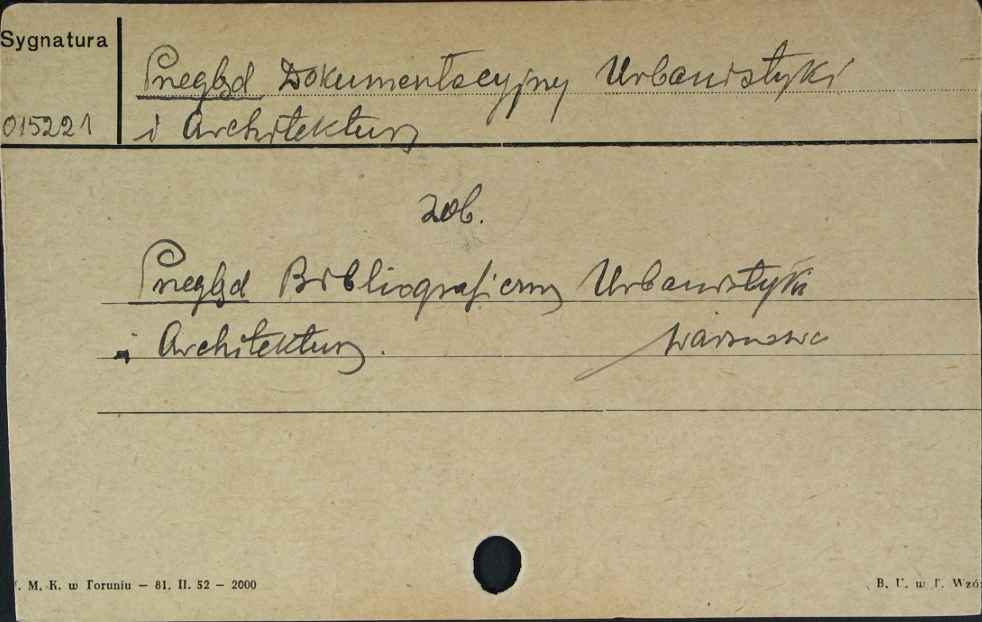 Sygnatura
Przegląd Dokumentacyjny Urbanistyki
015221 i Architektury
zob.
Przegląd Bibliograficzny Urbanistyki
i Architektury. Warszawa
. M. K. w Toruniu — 81. II. 52 — 2000
B. U. w T. Wzó